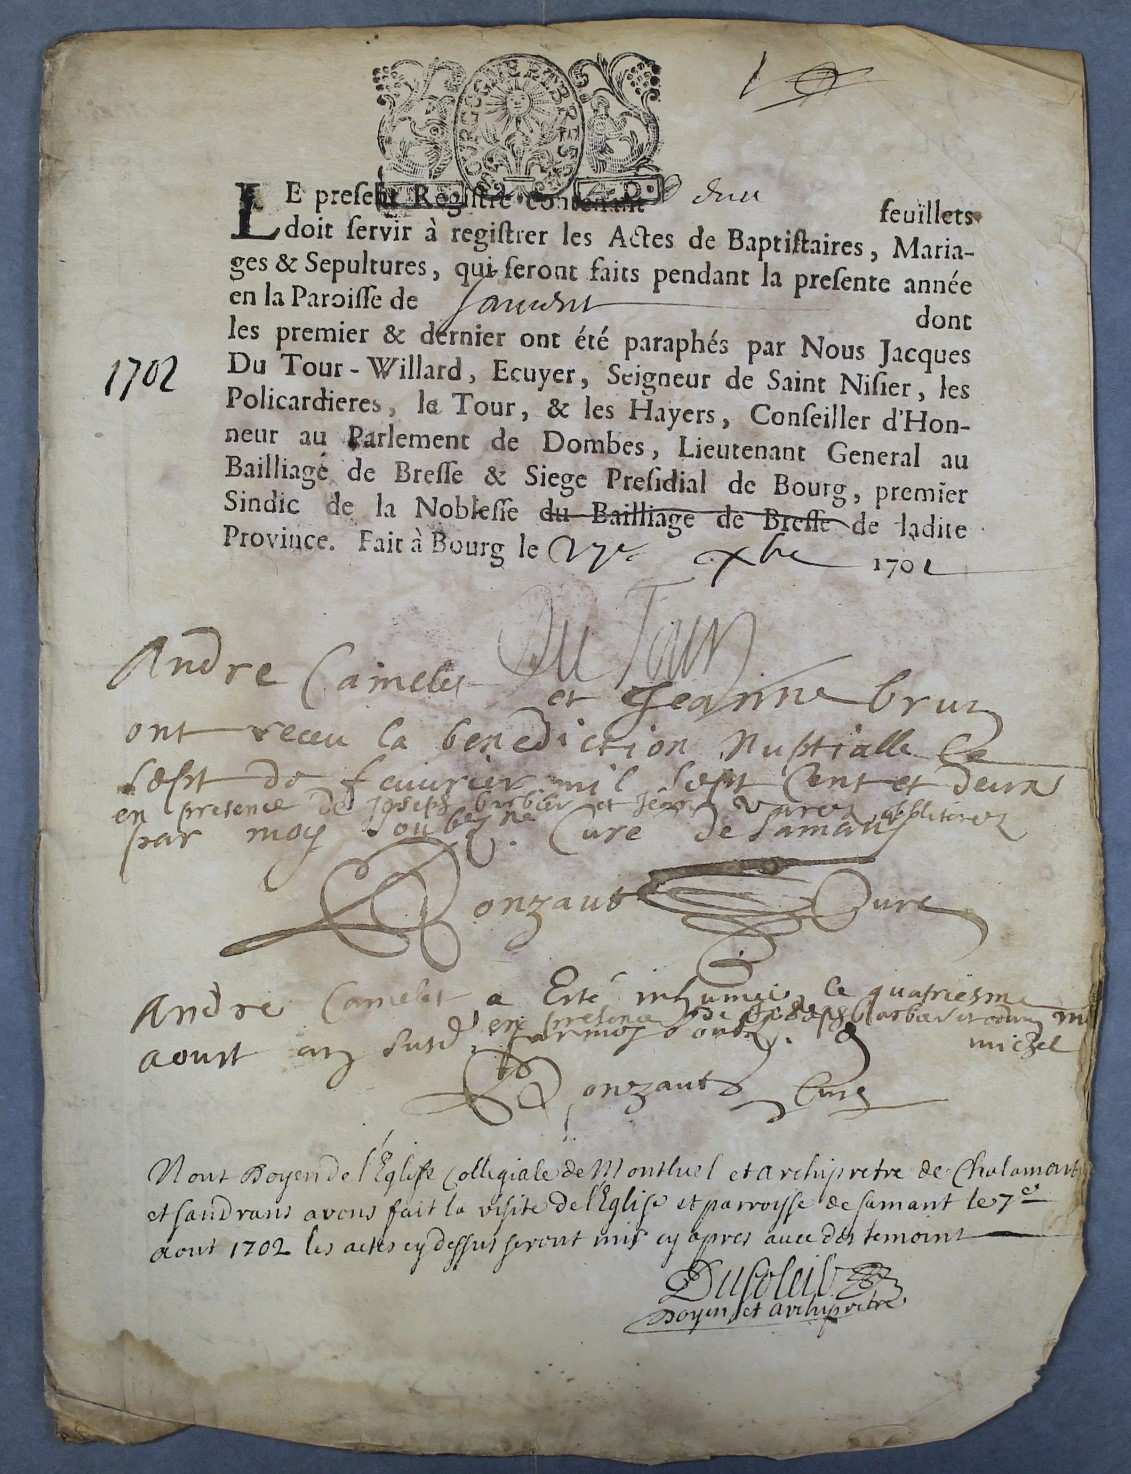 1
LE preſent Regiſtre contenant deux feuillets
doit ſervir à regiſtrer les Actes de Baptiſtaires, Maria-
ges & Sepultures, qui ſeront faits pendant la preſente année
en la Paroiſſe de Samans dont
les premier & dernier ont été paraphés par Nous Jacques
1702
Du Tour-Willard, Ecuyer, Seigneur de Saint Niſier, les
Policardieres, la Tour, & les Hayers, Conſeiller d'Hon-
neur au Parlement de Dombes, Lieutenant General au
Bailliage de Breſſe & Siege Preſidial de Bourg, premier
Sindic de la Nobleſſe du Bailliage de Breſſe de ladite
Province. Fait à Bourg le 27e xbre 1701
Du Tour
Andre Camelet et Jeanne brun
ont receu la benediction nuptialle le
sept de feuvrier mil sept cent et deux
en presence de Joseph barbier et
par moy soubsigné Cure de Samans
Bonzaut Cure
Andre Camelet a Esté inhumé le quatriesme
en presence de Joseph barbier et
aoust an susd. par moy soubs.
michel
Bonzaut Cure
Nous Doyen de l'Eglise Collegiale de Montluel et archipretre de Chalamont
et sandrans avons fait la visite de l'Eglise et parroisse de samant le 7e
aout 1702 les actes cy dessus seront mis cy apres avec des temoins
Dusoleil
Doyen et archipretre